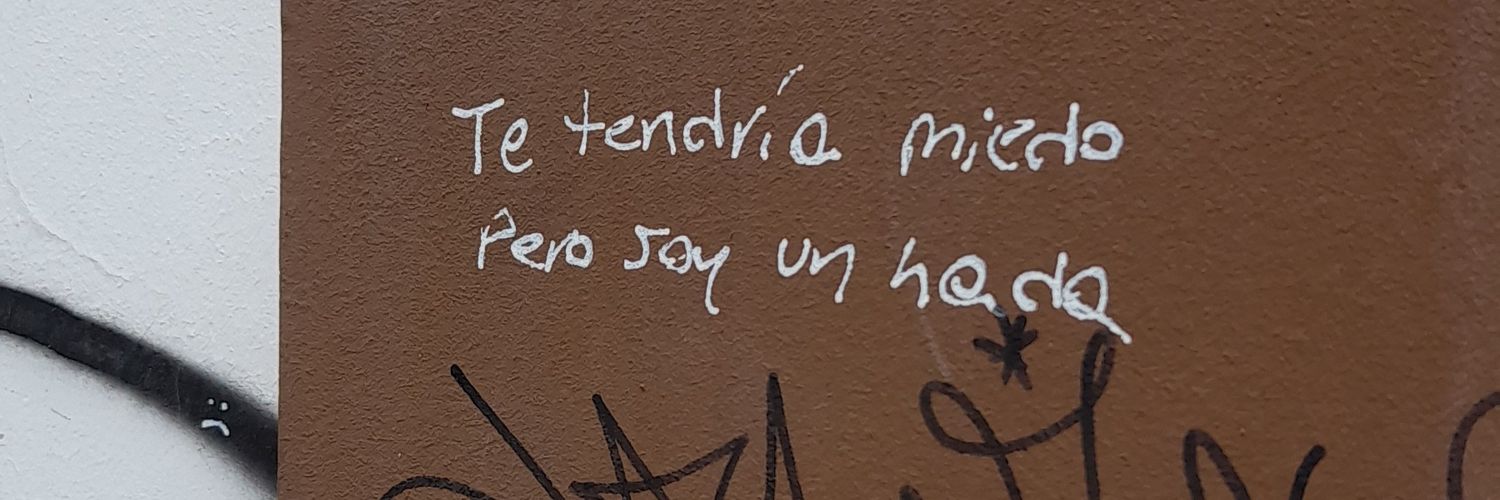 Te tendría miedo
Pero soy un hada